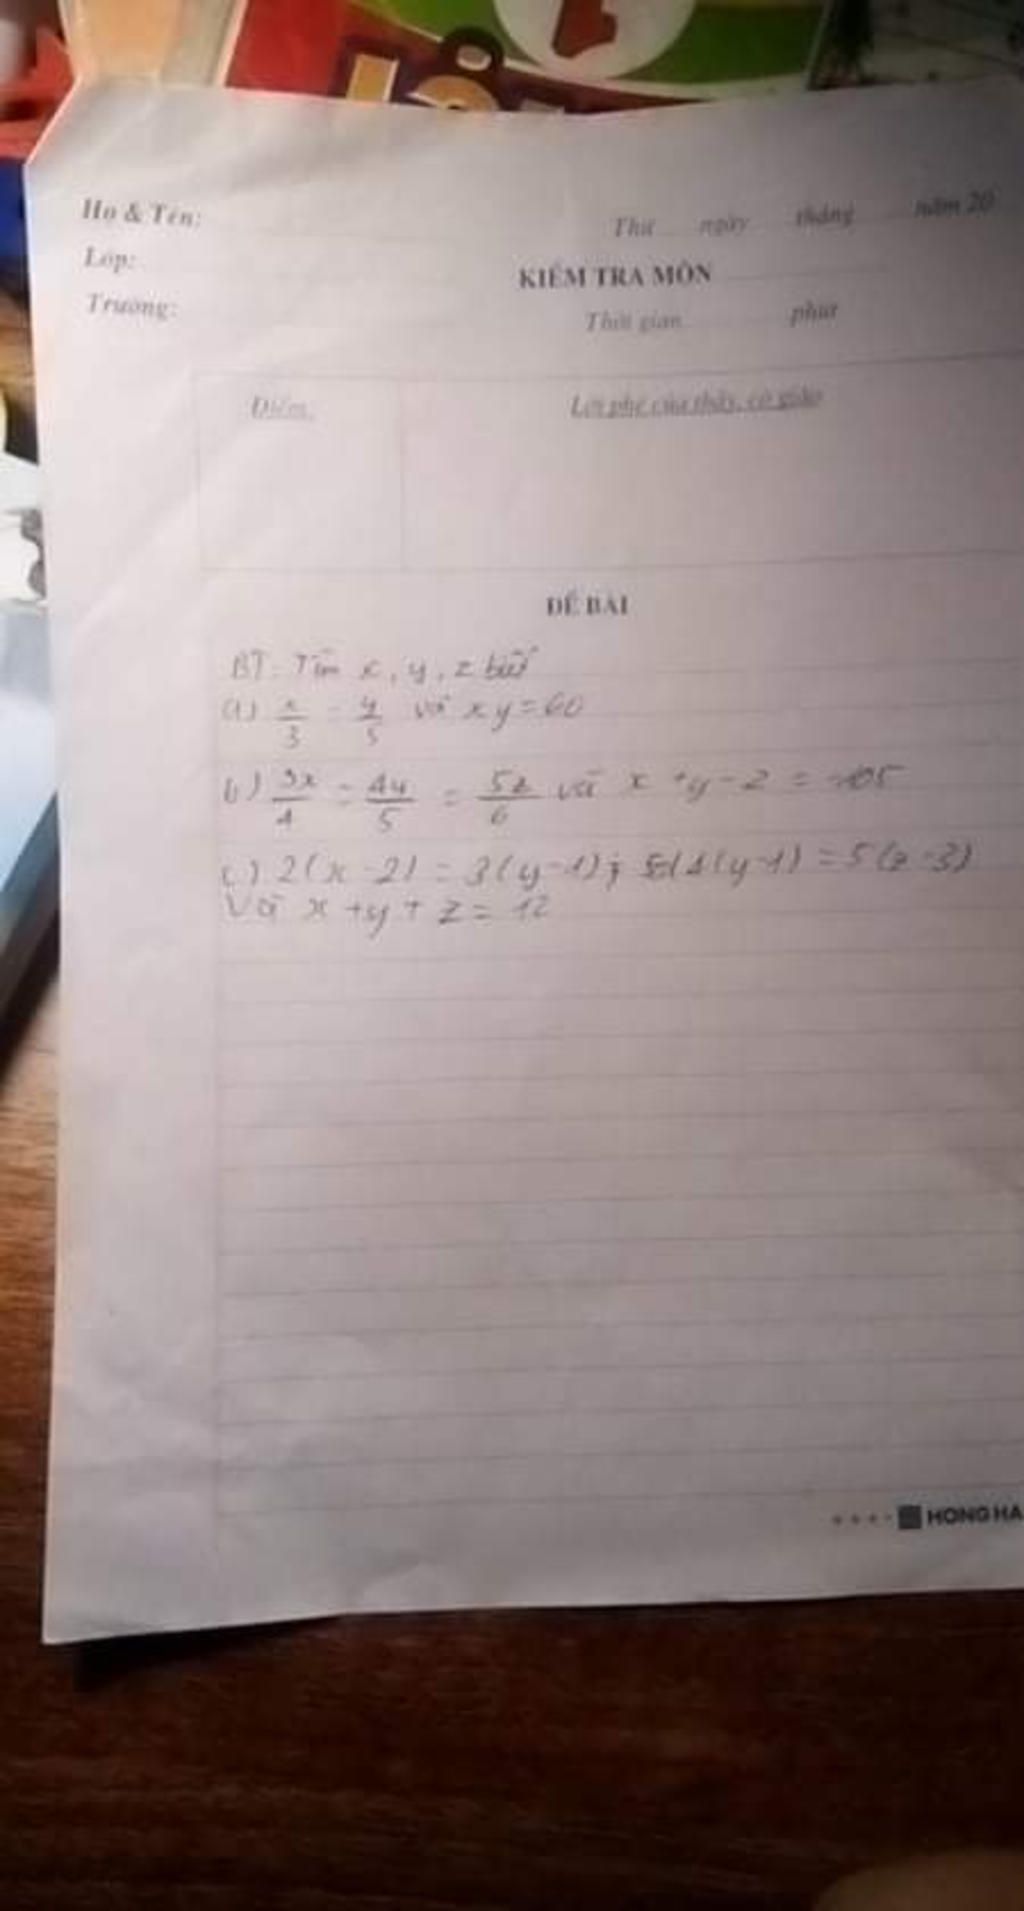 Họ & Tên:
Thứ ngày tháng năm 20
Lớp:
KIỂM TRA MÔN
Trường:
Thời gian phút
Điểm:
Lời phê của thầy, cô giáo
ĐỀ BÀI
BT: Tìm x, y, z biết
a) x/3 = y/5 và xy = 60
b) 3x/4 = 4y/5 = 5z/6 và x + y - z =
c) 2(x - 2) = 3(y - 1); 4(y - 1) = 5(z - 3)
Và x + y + z = 12
HONG HA